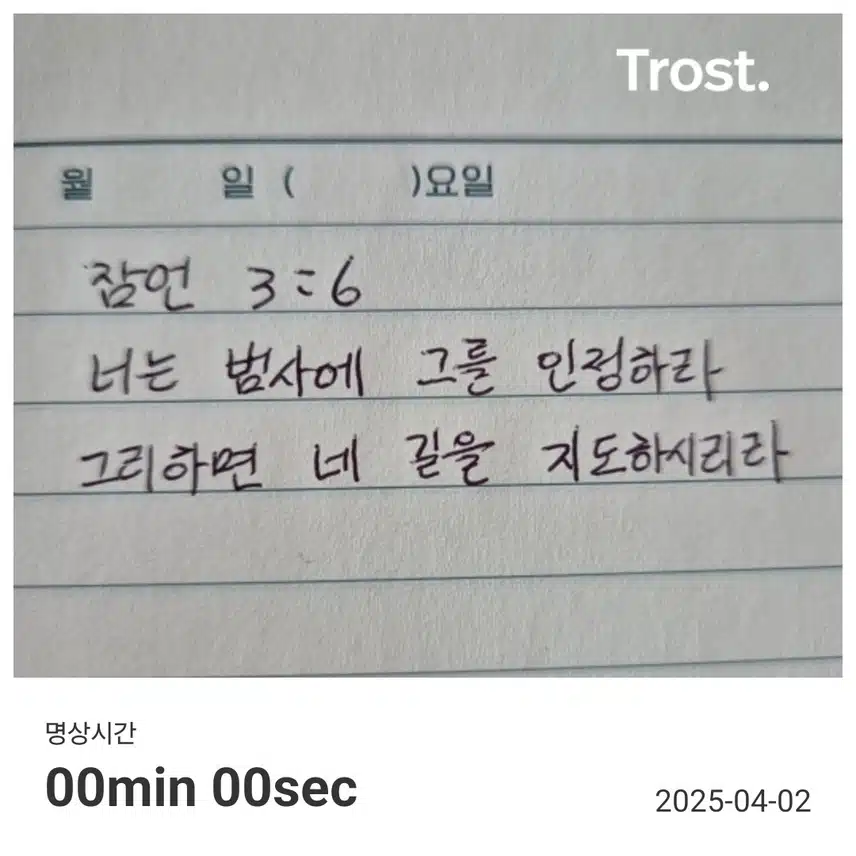 Trost.
월 일 ( )요일
잠언 3:6
너는 범사에 그를 인정하라
그리하면 네 길을 지도하시리라
명상시간
00min 00sec
2025-04-02